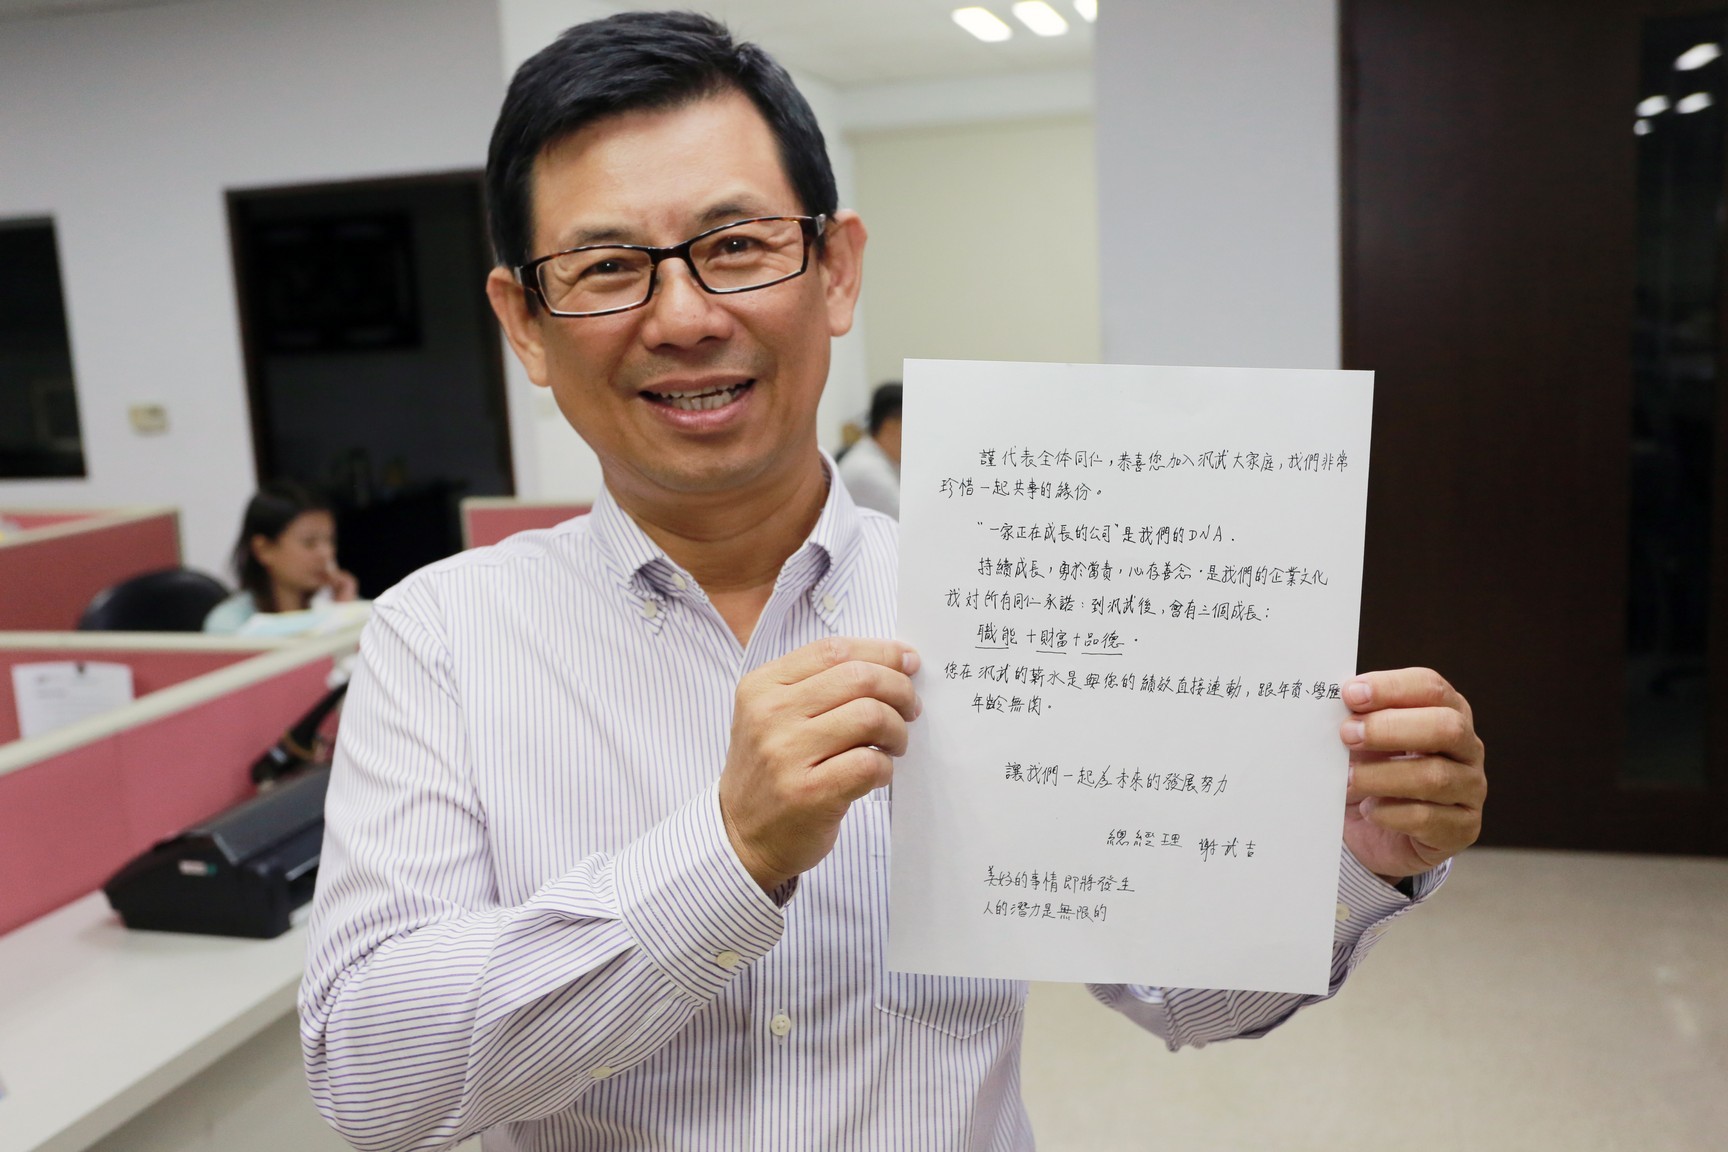 謹代表全体同仁，恭喜您加入汎武大家庭，我們非常
珍惜一起共事的緣份。
“一家正在成長的公司”是我們的DNA.
持續成長，勇於當責，心存善念．是我們的企業文化
我对所有同仁承諾：到汎武後，會有三個成長：
職能＋財富＋品德．
您在汎武的薪水是與您的績效直接連動，跟年資、學歷
年齡無関。
讓我們一起為未來的發展努力
總經理 謝武吉
美好的事情即將發生
人的潛力是無限的